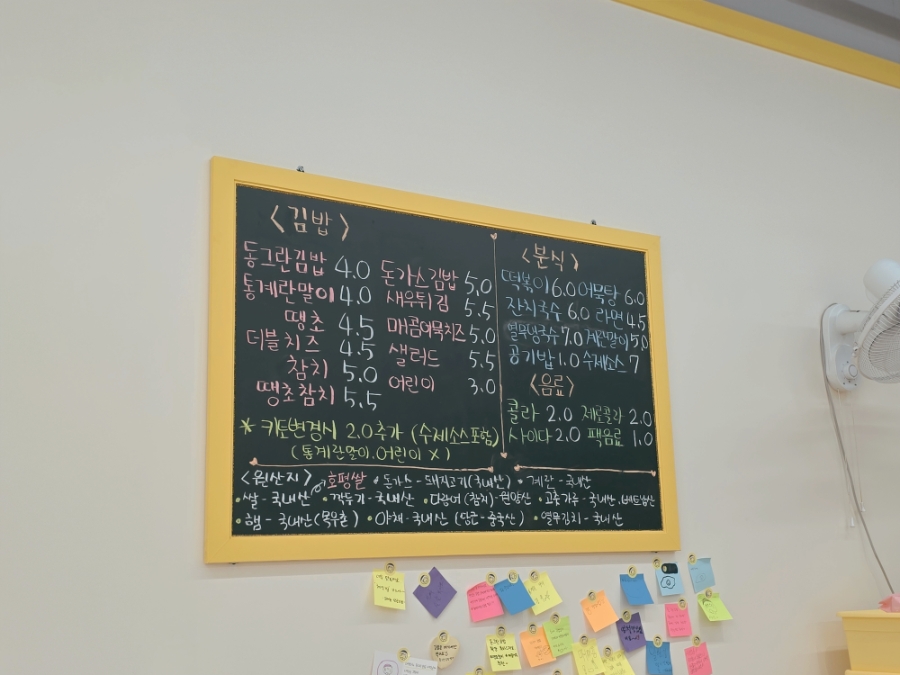 <김밥>
동그란김밥 4.0
통계란말이 4.0
땡초 4.5
더블치즈 4.5
참치 5.0
땡초참치 5.5
돈가스김밥 5.0
새우튀김 5.5
매콤어묵치즈 5.0
샐러드 5.5
어린이 3.0
* 키토변경시 2.0추가 (수제소스포함)
(통계란말이.어린이 X)
<분식>
떡볶이 6.0 어묵탕 6.0
잔치국수 6.0 라면 4.5
열무냉국수 7.0 계란말이 5.0
공기밥 1.0 수제소스 7
<음료>
콜라 2.0 제로콜라 2.0
사이다 2.0 팩음료 1.0
<원산지> 호평쌀 • 돈가스 - 돼지고기(국내산) • 계란 - 국내산
• 쌀 - 국내산 • 깍두기 - 국내산 • 다랑어 (참치) - 원양산 • 고춧가루 - 국내산, 베트남산
• 햄 - 국내산(목우촌) • 야채 - 국내산 (당근 - 중국산) • 열무김치 - 국내산